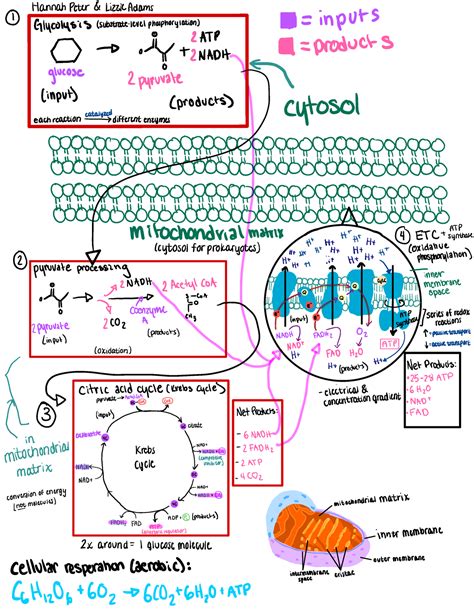 Hannah Peter & Lizzie Adams
1
Glycolysis (substrate-level phosphorylation)
glucose
(input)
2 pyruvate
2 ATP
2 NADH
(products)
each reaction catalyzed different enzymes
= inputs
= products
cytosol
mitochondrial matrix
(cytosol for prokaryotes)
2
pyruvate processing
2 pyruvate
(input)
2 NADH
2 CO2
2 Acetyl CoA
Coenzyme A
(products)
(Oxidation)
4
ETC + ATP synthase
(oxidative phosphorylation)
inner membrane space
H+
Cytc
ATP synthase
ATP
NADH
NAD+
FADH2
FAD
O2
H2O
H+
(products)
Series of redox reactions
passive transport
active transport
- electrical & concentration gradient
Net Products:
+25-28 ATP
6 H2O
NAD+
FAD
3
Citric acid cycle (Krebs Cycle)
pyruvate
(input)
citrate
Oxaloacetate
Krebs
Cycle
NAD+
NADH
FADH2
FAD
ADP +
ATP
(products)
2x around = 1 glucose molecule
Net Products:
- 6 NADH
- 2 FADH2
- 2 ATP
- 4 CO2
in
mitochondrial
matrix
conversion of energy
(not molecules)
mitochondrial matrix
inner membrane
outer membrane
intermembrane space
cristae
Cellular respiration (aerobic):
C6H12O6 + 6O2 → 6CO2 + 6H2O + ATP